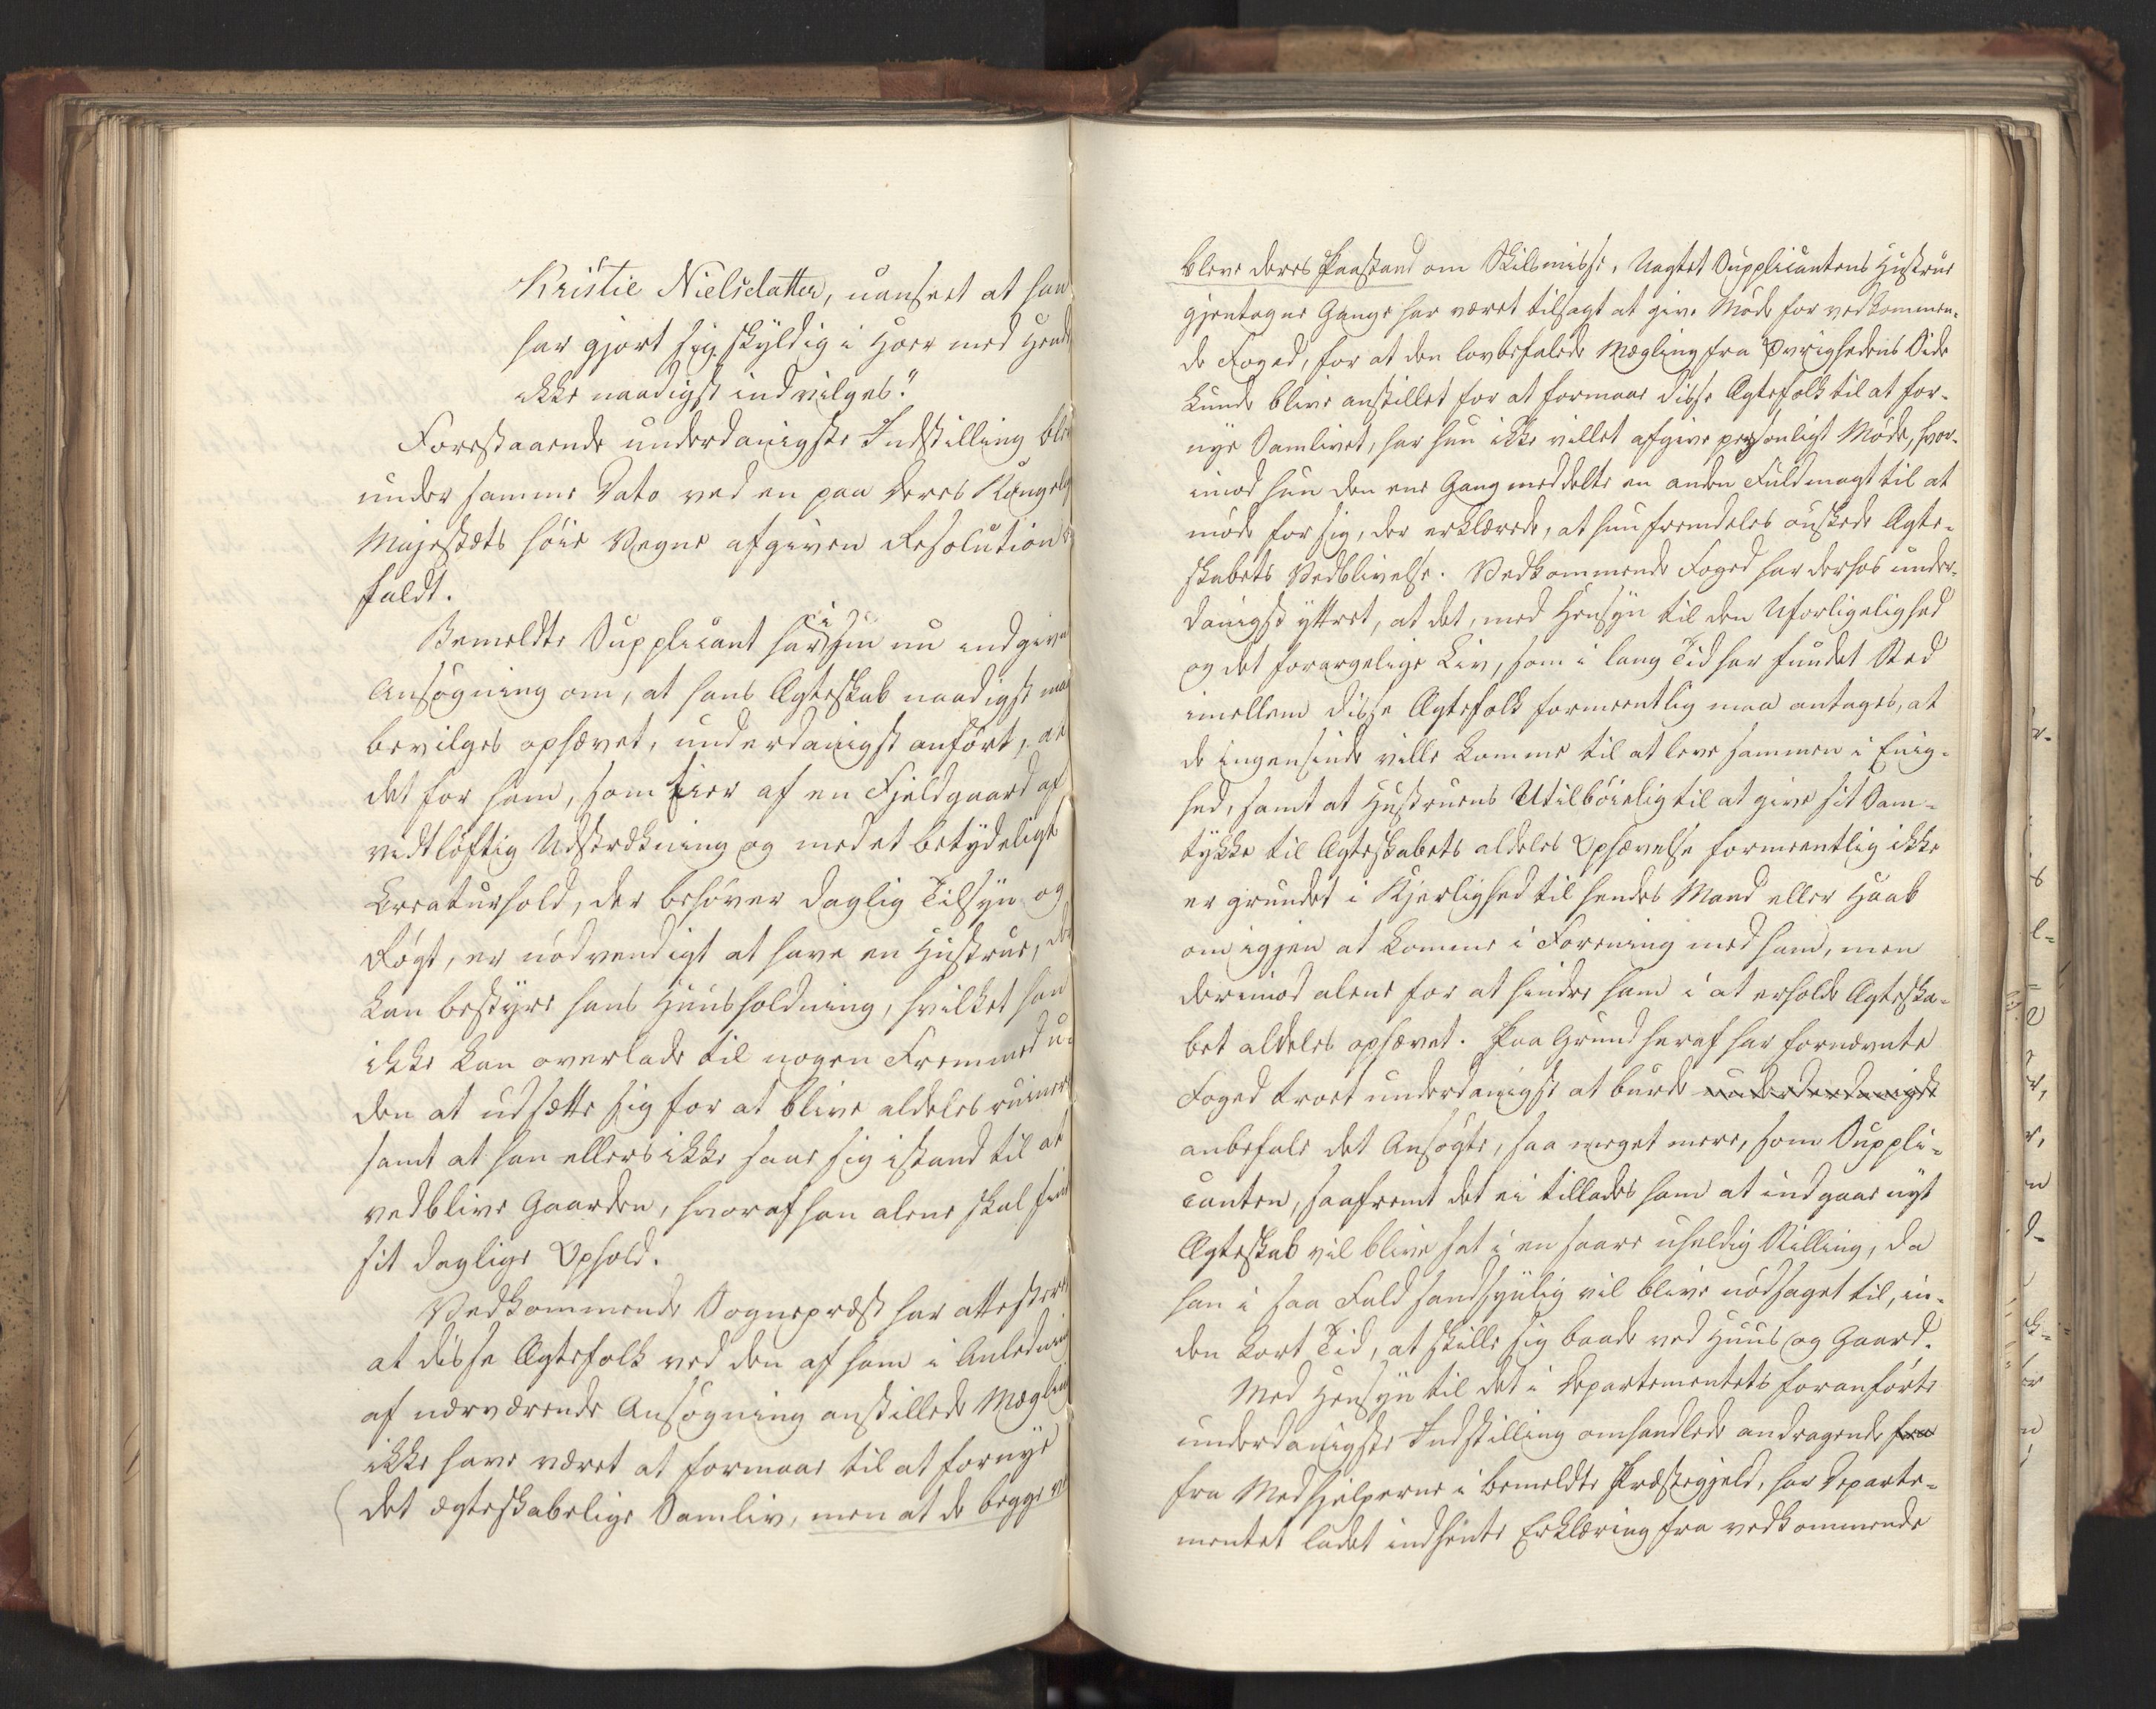 Kristie Nielsdatter, uanseet at han
har gjort sig skyldig i Hoer med Hende
ikke naadigst indvilges."
Forestaaende underdanigste Indstilling blev
under samme Dato ved en paa Deres Kongelig
Majestæts höie Vegne afgiven Resolution
faldt.
Bemeldte Supplicant har i sin nu indgivne
Ansögning om, at hans Ægteskab naadigst maa
bevilges ophævet, underdanigst anfört, at
det for ham, som Eier af en Fjeldgaard af
vidtlöftig Udstrækning og med et betydeligt
Creaturhold, der behöver daglig Tilsyn og
Rögt, er nödvendigt at have en Hustrue, der
kan bestyre hans Huusholdning, hvilket han
ikke kan overlade til nogen Fremmed u-
den at udsætte sig for at blive aldeles ruineret
samt at han ellers ikke saae sig istand til at
vedblive Gaarden, hvoraf han alene skal finde
sit daglige Ophold.
Vedkommende Sognepræst har attesteret
at disse Ægtefolk ved den af ham i Anledning
af nærværende Ansögning anstillede Mægling
ikke have været at formaae til at fornye
det ægteskabelige Samliv, men at de begge ved
bleve deres Paastand om Skilsmisse. Uagtet Supplicantens Hustrue
gjentagne Gange har været tilsagt at give Möde for vedkommen-
de Foged, for at den lovbefalede Mægling fra Øvrighedens Side
kunde blive anstillet for at formaae disse Ægtefolk til at for-
nye Samlivet, har hun ikke villet afgive personligt Möde, hvor-
imod hun den ene Gang meddelte en anden Fuldmagt til at
möde for sig, der erklærede, at hun fremdeles önskede Ægte-
skabets Vedblivelse. Vedkommende Foged har derhos under-
danigst yttret, at det, med Hensyn til den Uforligelighed
og det forargelige Liv, som i lang Tid har fundet Sted
imellem disse Ægtefolk formeentlig maa antages, at
de ingensinde ville komme til at leve sammen i Enig-
hed, samt at Hustruens Utilböielig til at give sit Sam-
tykke til Ægteskabets aldeles Ophævelse formeentlig ikke
er grundet i Kjerlighed til hendes Mand eller Haab
om igjen at komme i Forening med ham, men
derimod alene for at hindre ham i at erholde Ægteska-
bet aldeles ophævet. Paa Grund heraf har fornævnte
Foged troet underdanigst at burde underdanigst
anbefale det Ansögte, saa meget mere, som Suppli-
canten, saafremt det ei tillades ham at indgaae nyt
Ægteskab vil blive sat i en saare uheldig Stilling, da
han i saa Fald sandsynlig vil blive nödsaget til, in-
den kort Tid, at skille sig baade ved Huus og Gaard.
Med Hensyn til det i Departementets foranförte
underdanigste Indstilling omhandlede andragende fra
fra Medhjelperne i bemeldte Præstegjeld, har Departe-
mentet ladet indhente Erklæring fra vedkommende